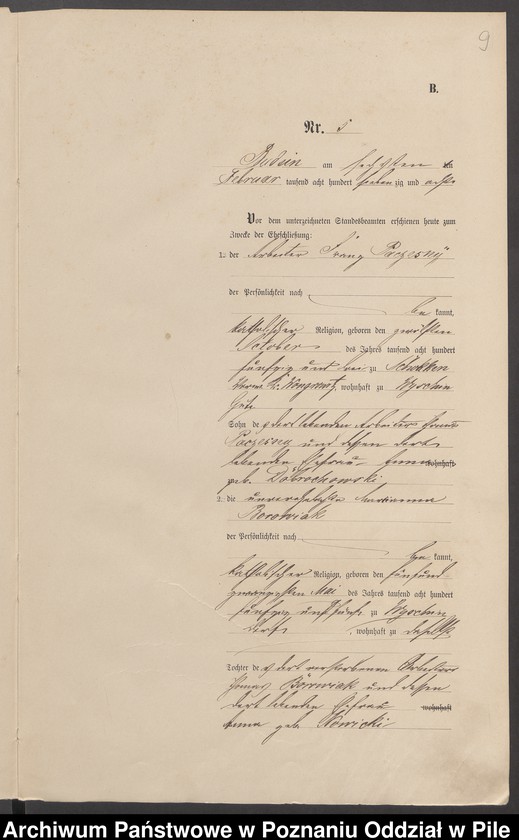 9
B.
Nr. 5
Budsin am sechsten
Februar tausend acht hundert siebenzig und acht
Vor dem unterzeichneten Standesbeamten erschienen heute zum
Zwecke der Eheschließung:
1. der Arbeiter Franz Paczesny
der Persönlichkeit nach
be kannt,
katholischer Religion, geboren den zwölften
October des Jahres tausend acht hundert
fünfzig und drei zu
wohnhaft zu Wyschin
Gut
Sohn de
Paczesny und dessen dort
lebenden Ehefrau Anna wohnhaft
geb. Dobrochowski
2. die unverehelichte Marianna
Borowiak
der Persönlichkeit nach
be kannt,
katholischer Religion, geboren den fünfund
zwanzigsten Mai des Jahres tausend acht hundert
fünfzig und fünf zu Wyschin
Dorf, wohnhaft zu daselbst
Tochter de s dort verstorbenen Arbeiters
Thomas Borowiak und dessen
dort lebenden Ehefrau wohnhaft
Anna geb. Nowicki
Archiwum Państwowe w Poznaniu Oddział w Pile